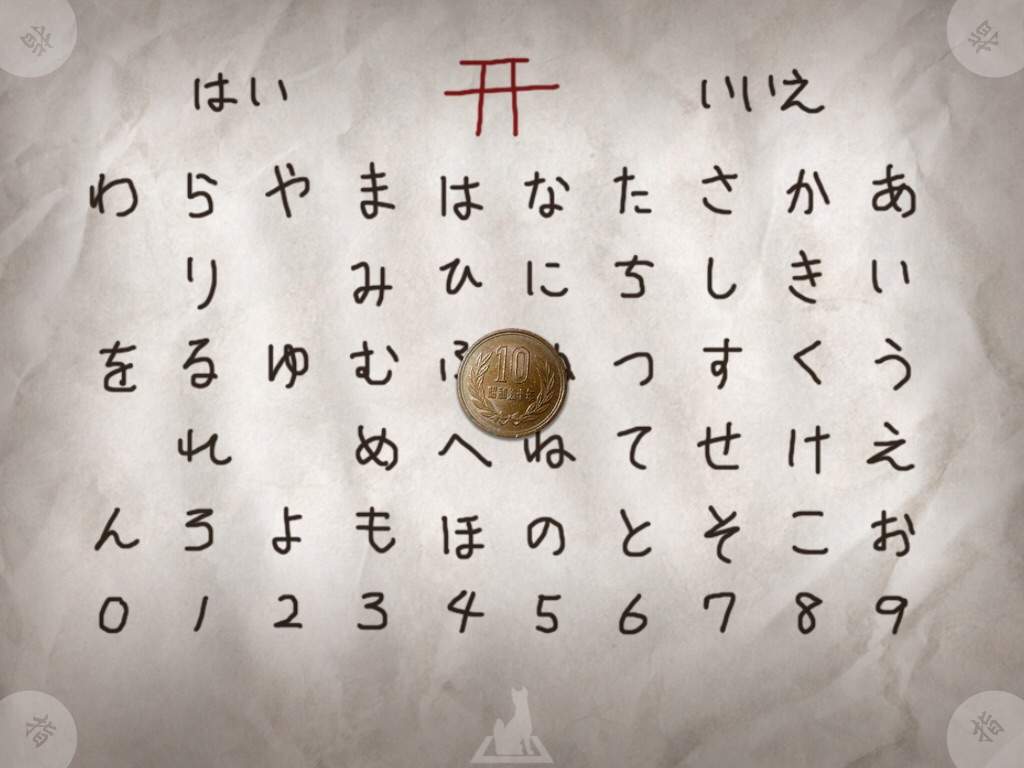 指 指
はい いいえ
わ ら や ま は な た さ か あ
り み ひ に ち し き い
を る ゆ む ふ つ す く う
10
れ め へ ね て せ け え
ん ろ よ も ほ の と そ こ お
0 1 2 3 4 5 6 7 8 9
指 指